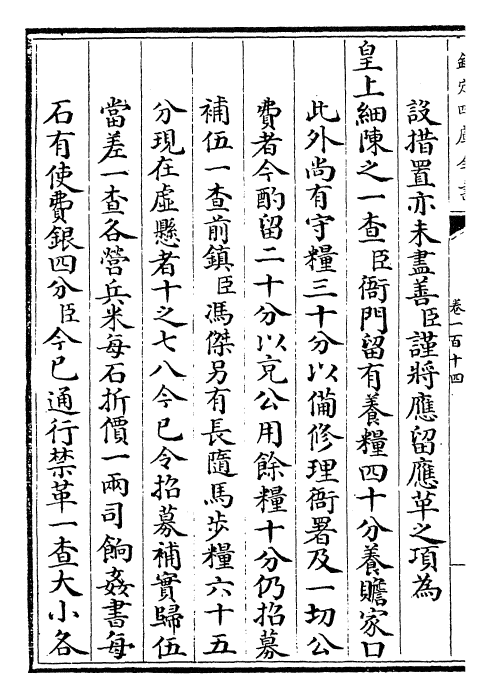 欽定四庫全書
卷一百十四
設措置亦未盡善臣謹將應留應革之項為
皇上細陳之一查臣衙門留有養糧四十分養贍家口
此外尚有守糧三十分以備修理衙署及一切公
費者今酌留二十分以充公用餘糧十分仍招募
補伍一查前鎮臣馮傑另有長隨馬步糧六十五
分現在虛懸者十之七八今已令招募補實歸伍
當差一查各營兵米每石折價一兩司餉姦書每
石有使費銀四分臣今已通行禁革一查大小各